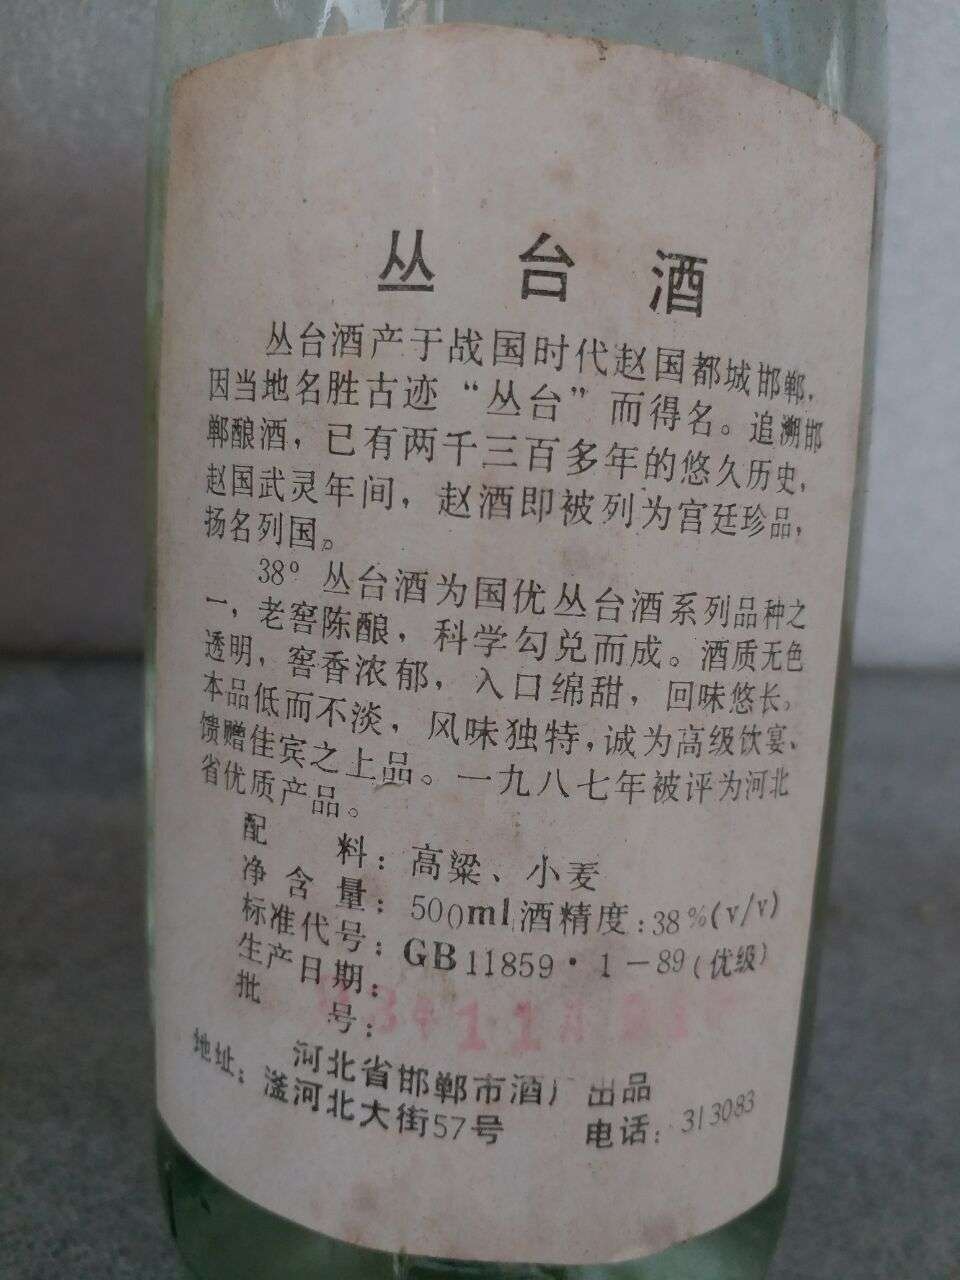 丛台酒
丛台酒产于战国时代赵国都城邯郸，
因当地名胜古迹“丛台”而得名。追溯邯
郸酿酒，已有两千三百多年的悠久历史，
赵国武灵年间，赵酒即被列为宫廷珍品，
扬名列国。
38°丛台酒为国优丛台酒系列品种之
一，老窖陈酿，科学勾兑而成。酒质无色
透明，窖香浓郁，入口绵甜，回味悠长。
本品低而不淡，风味独特，诚为高级饮宴、
馈赠佳宾之上品。一九八七年被评为河北
省优质产品。
配料：高粱、小麦
净含量：500ml 酒精度：38%(v/v)
标准代号：GB11859·1－89(优级)
生产日期：
批号：
河北省邯郸市酒厂出品
地址：滏河北大街57号 电话：313083